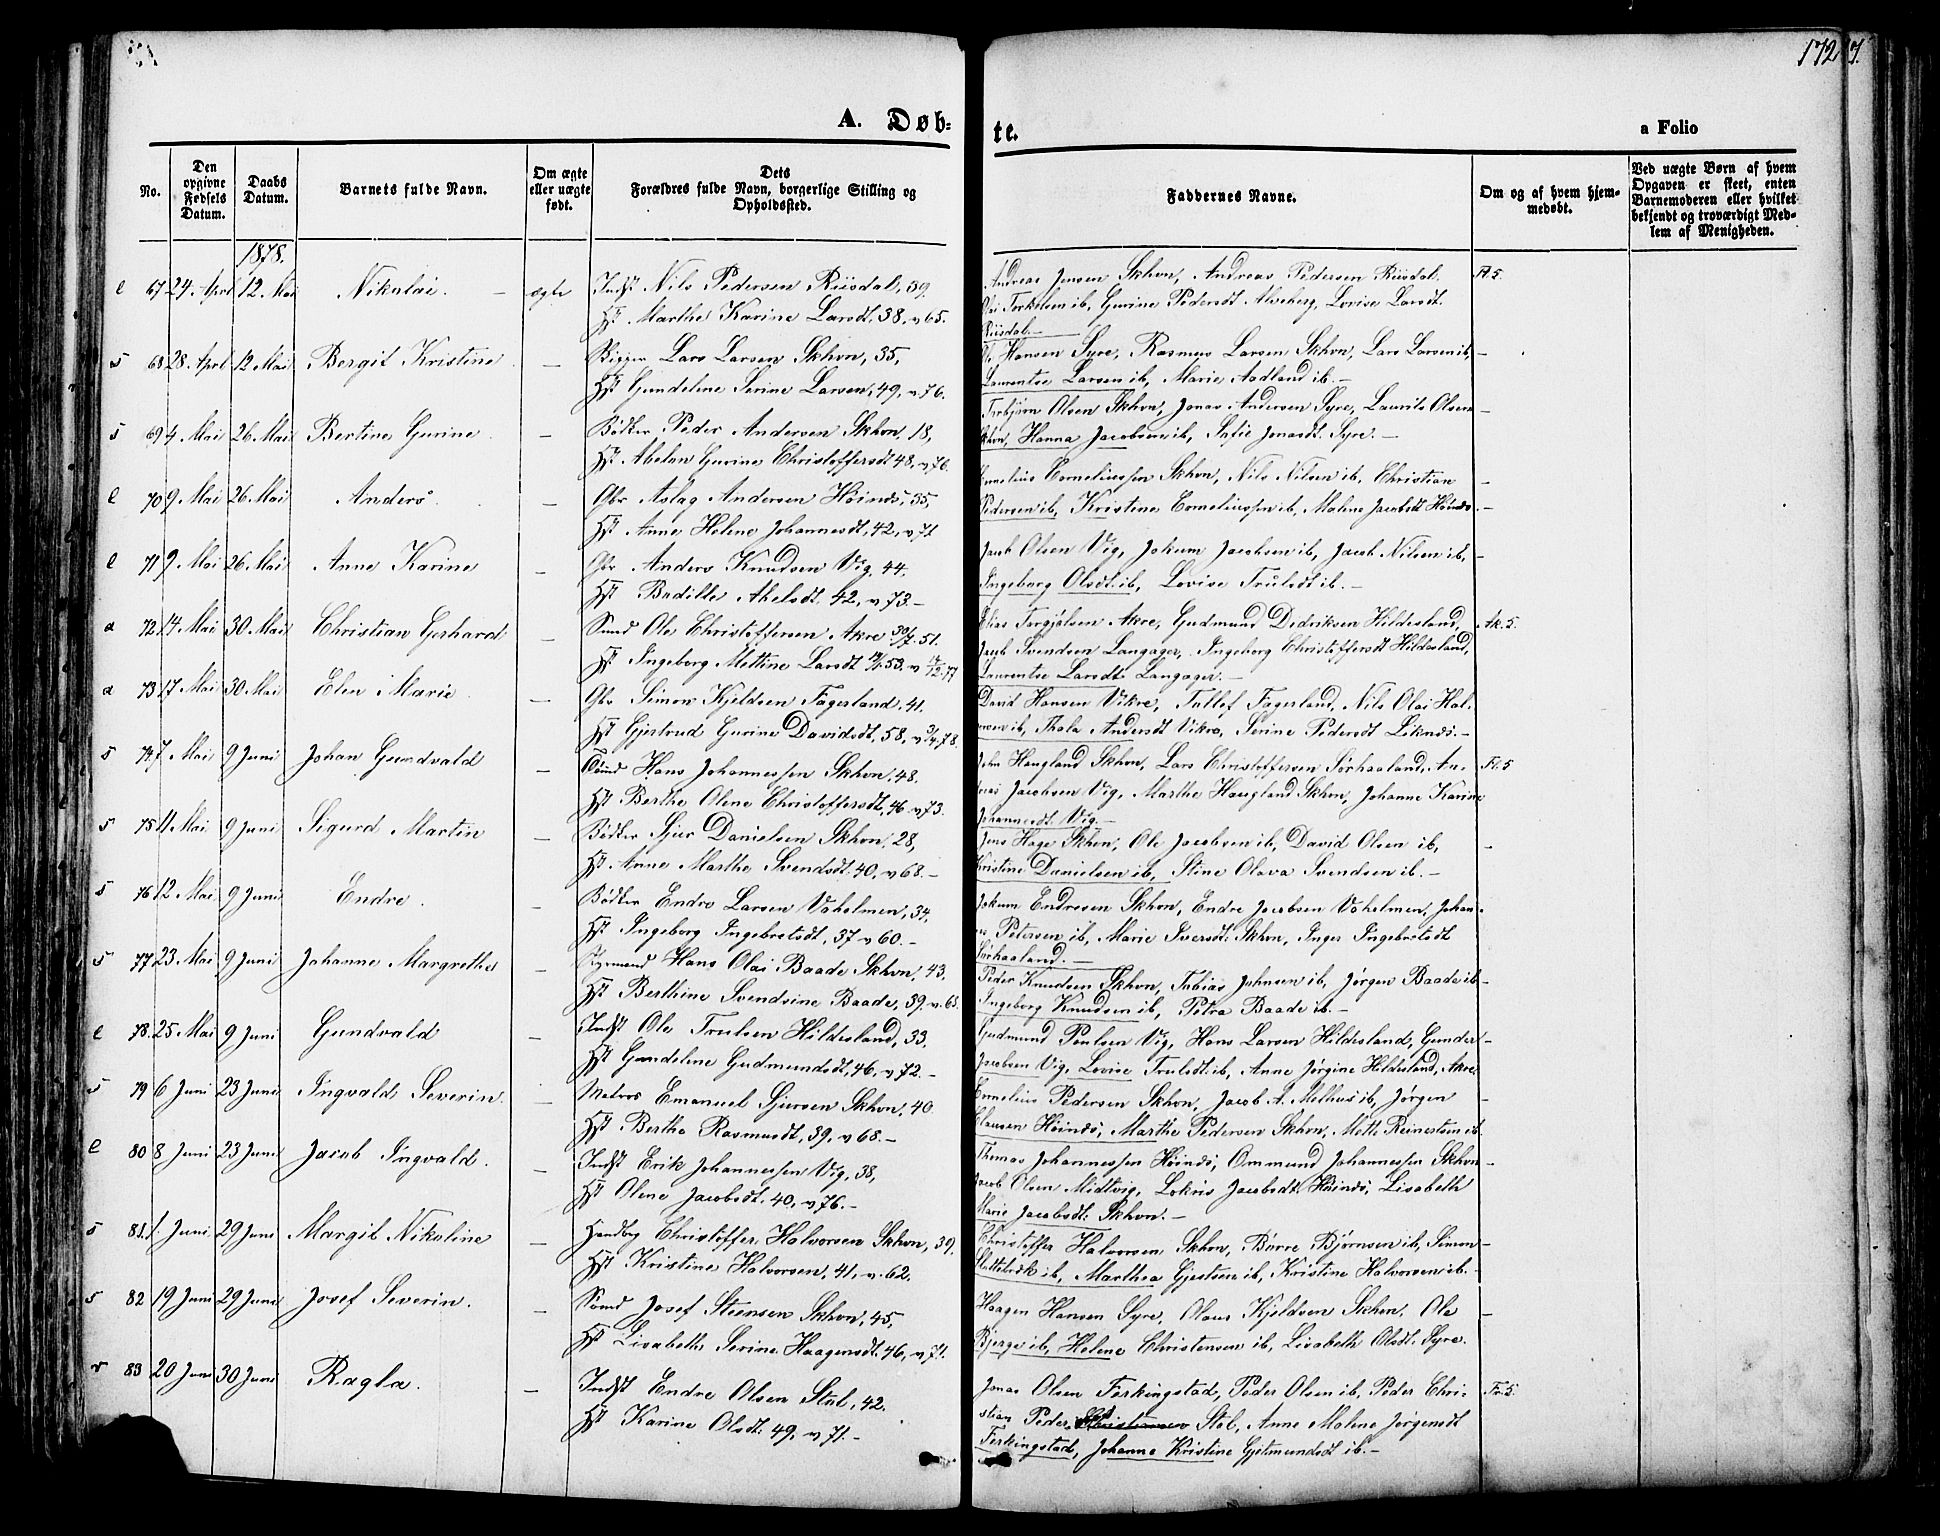 172 7.
A. Døb-
te.
a Folio
No.
Den opgivne Fødsels Datum.
Daabs Datum.
Barnets fulde Navn.
Om ægte eller uægte født.
Dets Forældres fulde Navn, borgerlige Stilling og Opholdssted.
Faddernes Navne.
Om og af hvem hjemmedøbt.
Ved uægte Børn af hvem Opgaven er skeet, enten Barnemoderen eller hvilket bekjendt og troværdigt Medlem af Menigheden.
1878.
e 67 24 April 12 Mai Nikolai. ægte Indst Nils Pedersen Riisdal, 39.
Hst Marthe Karine Larsdt, 38, v 65.
Andreas Jensen Skhvn, Andreas Pedersen Riisdal. Fl. 5.
Olai Torkelsen ib, Gurine Pedersdt Alvseberg, Lovise Larsdt.
Riisdal.-
5 68 28 April 12 Mai Bergit Kristine. - Bygger Lars Larsen Skhvn, 35,
Hst Gundeline Serine Larsen, 49, v 76.
Ole Hansen Syre, Rasmus Larsen Skhvn, Lars Larsen ib, -
Laurentse Larsen ib, Marie Aadland ib.-
5 69 4 Mai 26 Mai Bertine Gurine. - Bødker Peder Andersen Skhvn, 18,
Hst Abelon Gurine Christoffersdt 48, v 76.
Torbjørn Olsen Skhvn, Jonas Andersen Syre, Laurits Olsen -
Skhvn, Hanna Jacobsen ib, Sofie Jonasdt. Syre.-
e 70 9 Mai 26 Mai Anders. - Gbr Aslag Andersen Høinæs, 55,
Hst Anne Helene Johannesdt, 42, v 71
Cornelius Corneliussen Skhvn, Nils Nilsen ib, Christian -
Pedersen ib, Kristine Corneliussen ib, Malene Jacobsdt Høinæs.-
e 71 9 Mai 26 Mai Anne Karine - Gbr Anders Knudsen Vig, 44.
Hst Bodille Akelsdt. 42, v 73.-
Jacob Olsen Vig, Jokum Jacobsen ib, Jacob Nilsen ib, -
Ingeborg Olsdt. ib, Lovise Trulsdt ib.-
a 72 14 Mai 30 Mai Christian Gerhard - Smed Ole Christoffersen Akre 30/7. 51.
Hst Ingeborg Mettine Larsdt 53, v 77
Elias Torgjølsen Akre, Gudmund Didriksen Hildesland, Ak. 5.
Jacob Svendsen Langager, Ingeborg Christoffersdt Hildesland,
Laurentse Larsdt Langager.-
a 73 17 Mai 30 Mai Elen Marie - Gbr Simon Kjeldsen Fagerland, 41.
Hst Gjertrud Gurine Davidsdt, 58, v 3/4. 78.
David Hansen Vikre, Tollef Fagerland, Nils Olai Hal-
vorsen ib, Thala Andersdt Vikre, Serine Pedersdt Liknæs.-
5 74 7 Mai 9 Juni Johan Gundvald - Sømd Hans Johannessen Skhvn, 48.
Hst Berthe Olene Christoffersdt, 46 v 73.
John Haugland Skhvn, Lars Christoffersen Sørhaaland, An- Fl. 5
dreas Jacobsen Vig, Marthe Haugland Skhvn, Johanne Karine
Johannesdt Vig.-
5 75 11 Mai 9 Juni Sigurd Martin - Bødker Sjur Danielsen Skhvn, 28,
Hst Anne Marthe Svendsdt. 40, v 68.-
Jens Hage Skhvn, Ole Jacobsen ib, David Olsen ib, -
Kristine Danielsen ib, Stine Olava Svendsen ib.-
5 76 12 Mai 9 Juni Endre. - Bødker Endre Larsen Vaholmen, 34,
Hst Ingeborg Ingebretsdt, 37 v 60.-
Jokum Endresen Skhvn, Endre Jacobsen Vaholmen, Johan-
nes Petersen ib, Marie Iversdt. Skhvn, Inger Ingebretsdt
Sørhaaland.-
5 77 23 Mai 9 Juni Johanne Margrethe - Styrmand Hans Olai Baade Skhvn, 43.
Hst Berthine Svendsine Baade, 39, v. 63.
Peder Knudsen Skhvn, Tobias Johnsen ib, Jørgen Baade ib -
Ingeborg Knudsen ib, Petra Baade ib.-
e 78. 25 Mai 9 Juni Gundvald - Indst Ole Trulsen Hildesland, 33.
Hst Gundeline Gudmundsdt, 46, v 72.-
Gudmund Poulsen Vig, Hans Larsen Hildesland, Gunder -
Jacobsen Vig, Lovise Trulsdt. ib, Anne Jørgine Hildesland, Akre.
5 79 6 Juni 23 Juni Ingvald Severin. - Matros Emanuel Sjursen Skhvn, 40
Hst Berthe Rasmusdt, 39, v 68.-
Cornelius Pedersen Skhvn, Jacob A. Melhus ib, Jørgen -
Clausen Høinæs, Marthe Pedersen Skhvn, Mette Reinertsen ib.
e 80 8 Juni 23 Juni Jacob Ingvald. - Indst Erik Johannessen Vig, 38,
Hst Olene Jacobsdt. 40, v 76.-
Thomas Johannessen Høinæs, Ommund Johannessen Skhvn -
Jacob Olsen Midtvig, Lokris Jacobsdt Høinæs, Lisabeth
Marie Jacobsdt. Skhvn.-
5 81 1. Juni 29 Juni Margit Nikoline - Handby Christoffer Halvorsen Skhvn, 39,
Hst Kristine Halvorsen, 41, v. 62.
Christoffer Halvorsen Skhvn, Børre Bjørnsen ib, Simon -
Slettebøk ib, Marthea Gjertsen ib, Kristine Halvorsen ib.-
5 82 19 Juni 29 Juni Josef Severin. - Sømd Josef Steensen Skhvn, 45,
Hst Lisabeth Serine Haagensdt. 46, v 71.
Haagen Hansen Syre, Olaus Kjeldsen Skhvn, Ole -
Bjerge ib, Helene Christensen ib, Lisabeth Olsdt. Syre.
v 83 20 Juni 30 Juni Ragla. - Indst Endre Olsen Stol, 42.
Hst Karine Olsdt. 49, v 71.-
Jonas Olsen Ferkingstad, Peder Olsen ib, Peder Chri- Fr. 5.
stian Peder Stol, Anne Malene Jørgensdt
Ferkingstad, Johanne Kristine Gjetmundsdt ib.-